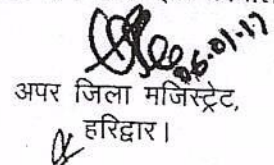 06.01.17
अपर जिला मजिस्ट्रेट,
हरिद्वार।